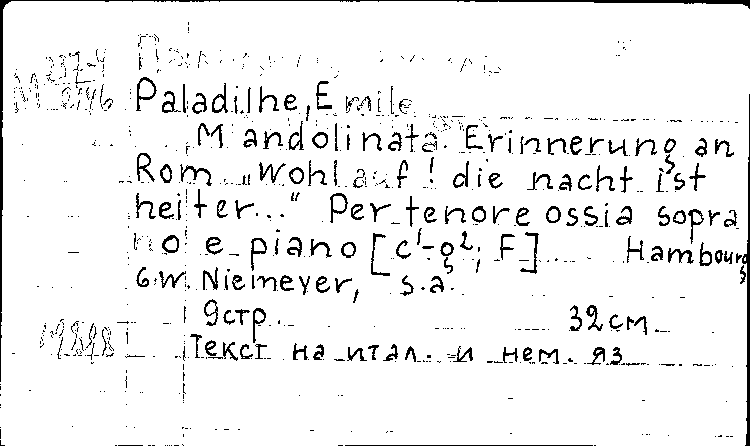 M 237-4
2146
Paladilhe, Emile
Mandolinata. Erinnerung an
Rom „Wohl auf! die nacht ist
heiter..." Per tenore ossia sopra
no e piano [c¹-g²; F] Hambourg
G.W. Niemeyer, s.a.
9стр. 32см
Текст на итал. и нем. яз